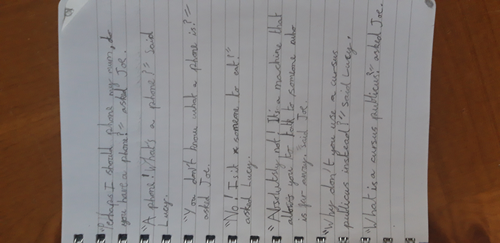 "Perhaps I should phone my mum, do
you have a phone?" asked Joe.
"A phone! What's a phone?" said
Lucy.
"You don't know what a phone is?"
asked Joe.
"No! Is it someone to eat?"
asked Lucy.
"Absolutely not! It's a machine that
allows you to talk to someone who
is far away," said Joe.
"Why don't you use a cursus
publicus instead?" said Lucy.
"What is a cursus publicus?" asked Joe.